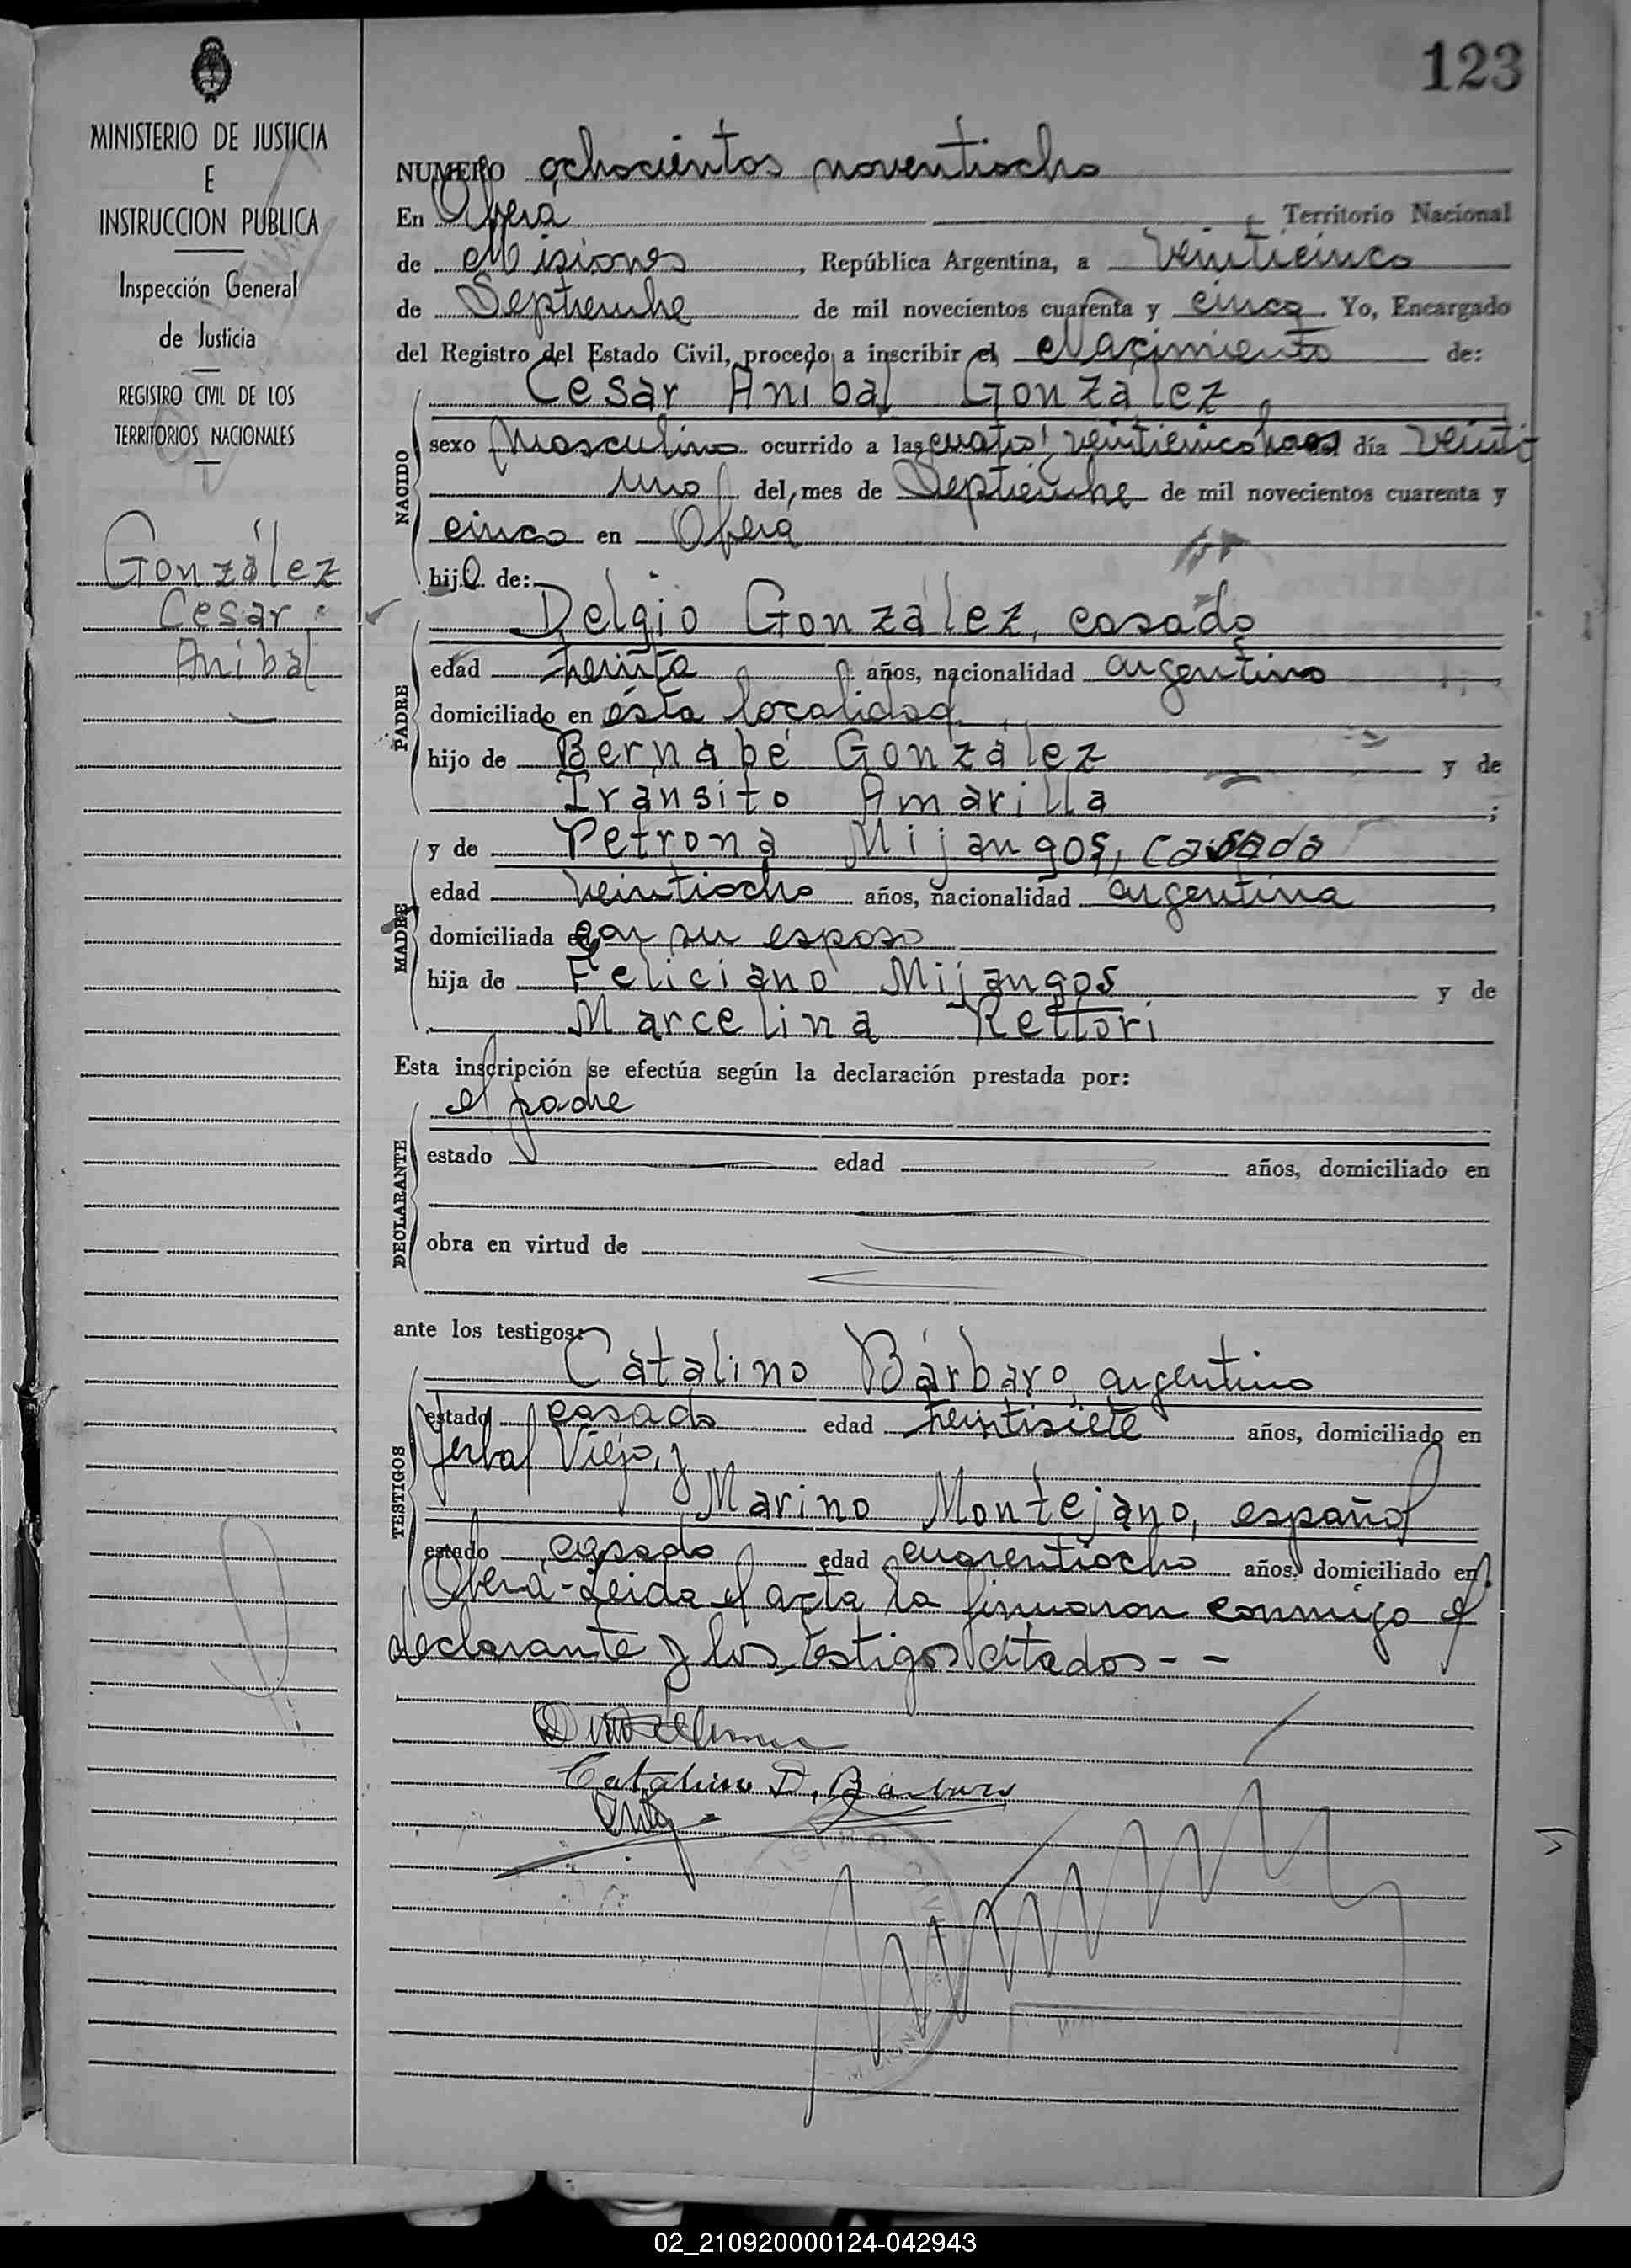 123
MINISTERIO DE JUSTICIA
E
INSTRUCCION PUBLICA
Inspección General
de Justicia
REGISTRO CIVIL DE LOS
TERRITORIOS NACIONALES
González
Cesar
Anibal
NUMERO ochocientos noventiocho
En Oberá Territorio Nacional
de Misiones, República Argentina, a veinticinco
de Septiembre de mil novecientos cuarenta y cinco. Yo, Encargado
del Registro del Estado Civil, procedo a inscribir el Nacimiento de:
Cesar Anibal González
NACIDO
sexo masculino ocurrido a las cuatro y veinticinco horas día veinti
uno del mes de Septiembre de mil novecientos cuarenta y
cinco en Oberá
hijo de:
Delgio González, casado
PADRE
edad treinta años, nacionalidad argentino
domiciliado en ésta localidad
hijo de Bernabé González y de
Tránsito Amarilla;
y de Petrona Mijangos, casada
MADRE
edad veintiocho años, nacionalidad argentina,
domiciliada con su esposo
hija de Feliciano Mijangos y de
Marcelina Rettori
Esta inscripción se efectúa según la declaración prestada por:
el padre
DECLARANTE
estado edad años, domiciliado en
obra en virtud de
ante los testigos:
Catalino Bárbaro, argentino
TESTIGOS
estado casado edad treintisiete años, domiciliado en
Yerbal Viejo, y
Marino Montejano, español
estado casado edad cuarentiocho años, domiciliado en
Oberá - Leida el acta la firmaron conmigo el
declarante y los testigos citados - -
Catalino D. Bárbaro
02_210920000124-042943